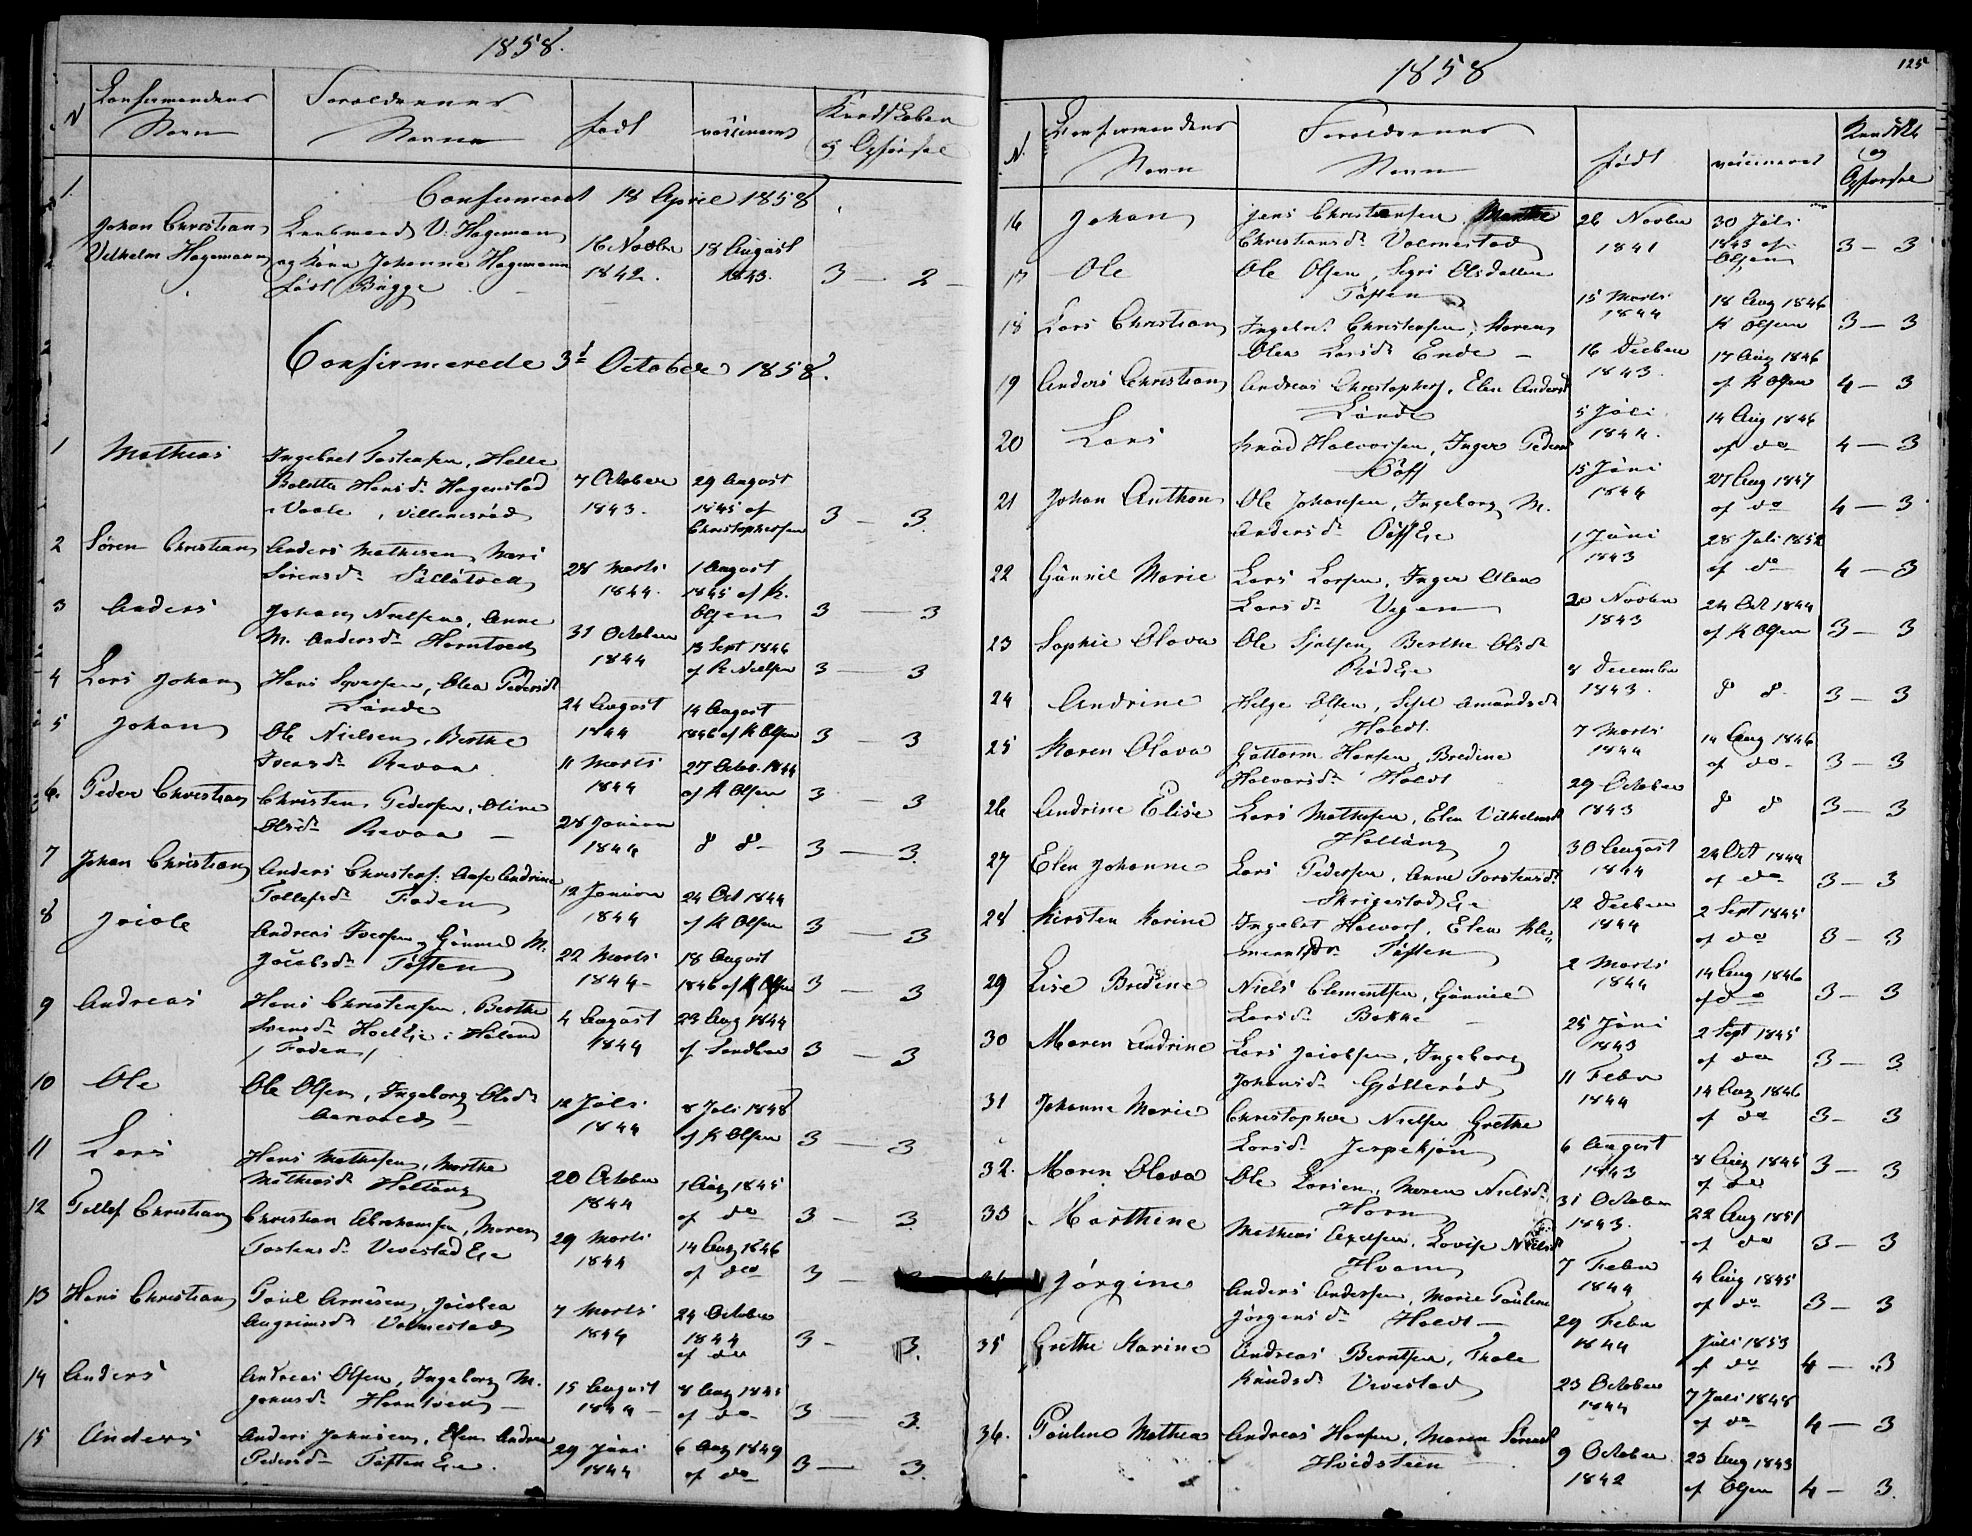 1858.
N Confirmandens Navn Foreldrenes Navne født vaccineret Kundskaber og Opførsel
Confirmeret 18 April 1858
1. Johan Christian Lensmand V. Hagemann
Vilhelm Hagemann og Kone Johanne Hagemann 16 Novbr 18 August
født Bugge 1842. 1843. 3 — 2
Confirmerede 3d October 1858.
1 Mathias Ingebret Tostensen, Helle
Bolette Hansd. Hagenstad 7 October 29 August
1843. 1845 af
Christophersen 3 — 3
2 Søren Christian Anders Mathisen, Mari
Sørensd. 28 Marts 1 August
1844. 1845 af K.
Olsen 3 — 3
3 Anders Johan Nielsen, Anne
M. Andersd. Horntvedt 31 October 13 Sept 1846
1844 af R Nielsen 3 — 3
4 Lars Johan Hans Syversen, Olea Pedersd
Lunde 24 August 14 August
1844 1846 af K Olsen 3 — 3
5 Johan Ole Nielsen, Berthe
Iversd. Revaa 11 Marts 27 Octbr. 1844
1844 af K Olsen 3 — 3
6. Peder Christian Christen Pedersen, Oline
Olsd. Revaa — 28 Januar
1844 d d 3 — 3.
7 Johan Christian Anders Christens. Aase Andrine
Tollefsd. Foden 12 Januar 24 Oct 1844
1844 af K Olsen 3 — 3
8 Jacob Andreas Iversen, Gunnild M.
Jacobsd. Toften 22 Marts 18 August
1844 1846 af K Olsen 3 — 3
9 Andreas Hans Christensen, Berthe
Svensd. i Høland 4 August 23 Aug 1844
/Foden/ 1844 af Sandboe 3 — 3
10 Ole Ole Olsen, Ingeborg Olsd.
12 Juli 8 Juli 1848
1844 af K Olsen 3 — 3
11 Lars Hans Mathisen, Marthe
Mathiasd. Holtung 20 October 1 Aug 1845
1844 af do 3 — 3
12 Tollef Christian Christian Abrahamsen, Maren
Tostensd. Vevestad Eie 29 Marts 14 Aug 1846
1844 af do 3 —
13 Hans Christian Poul Arnesen, Jacobea
Angrimsd. Valmestad 7 Marts 24 October
1844 1844
af do 3 - 3.
14 Anders Andreas Olsen, Ingeborg M.
Horntvedt — 15 August 8 Aug 1845
1844 af do 3 — 3.
15 Anders Anders Johnsen, Elen Andrea
Pedersd. Toften Eie. 29 Juni 6 Aug 1849
1844 af do 3 — 3.
125
1858
N. Confirmandens Navn Foreldrenes Navn født vaccineret Kundsk og Opførsel
16 Johan Jens Christensen, Marthe 26 Novbr 30 Juli
Christiansd. Valmestad 1841 1843 af
Olsen 3 — 3
17 Ole Ole Olsen, Segri Olsdatter
Toften 15 Marts 18 Aug 1846
1844 K Olsen 3 — 3
18 Lars Christian Ingebret Christensen, Karen
Olea Larsd. Ende — 16 Decbr 17 Aug 1846
1843. af K Olsen 4 — 3
19 Anders Christian Andreas Christophers, Elen Andersd
Lunde 5 Juli 14 Aug 1846
1844. af do 4 — 3
20 Lars Knud Halvorsen, Inger Pedersd
15 Juni 27 Aug 1847
1844 af do 4 — 3
21 Johan Anthon Ole Johansen, Ingeborg M.
Andersd. 1 Juni 28 Juli 1852
1843 af do 4 — 3
22 Gunnil Marie Lars Larsen, Inger Olea
Larsd. 20 Novbr 24 Oct 1844
1843 af K Olsen 3 — 3
23 Sophie Olava Ole Berthe Olsd
Rød Eie 8 Decembr
1843. d d 3 — 3
24 Andrine Helge Olsen, Amundsd
Holdt. 7 Marts 14 Aug 1846
1844 af do 3 — 3
25 Karen Olava Guttorm Hansen, Bredine
Halvorsd. Holdt 29 October
1843 d d 3 — 3
26 Andrine Elise Lars Mathisen, Elen Vilhelmsd
Holtung 30 August 24 Oct 1844
1844 af do 3 — 3
27 Elen Johanne Lars Pedersen, Anne Torstensd.
Skrigestad Eie 12 Decbr 2 Sept 1845
1844 af do 3 — 3
28 Kirsten Karine Ingebret Halvors, Elen Kle-
mentsdr. Toften 2 Marts 14 Aug 1846
1844 af do 3 — 3
29 Lise Bredine Niels Clementsen, Gunnil
Larsd. Bakke 25 Juni 2 Sept 1845
1843 af do 3 — 3
30 Maren Andrine Lars Jacobsen, Ingeborg
Johansd. Gjøllerød 11 Febr 14 Aug 1846
1844 af do 3 - 3
31 Johanne Marie Christopher Nielsen Grethe
Larsd. 6 August 8 Aug 1845
1843 af do 3 — 3
32. Maren Olava Ole Larsen, Maren Nielsd.
Horn 31 October 22 Aug 1851
1843. af do 3 — 3
33 Marthine Mathias Axelsen, Lovise Nielsd
Hvam 7 Febr 4 Aug 1845
1844 af do 3 — 3
Jørgine Anders Andersen, Marie Pauline
Jørgensd. Holdt — 29 Febr Juli 1853
1844 af do 4 — 3
35 Grethe Karine Andreas Berntsen, Thale
Knudsd. Vevestad 23 October 7 Juli 1848
1844 af do 4 — 3
36. Pauline Mathea Andreas Hansen, Maren Sørensd
Hvidsteen 9 October 23 Aug 1843
1842 af Olsen 4 — 3.